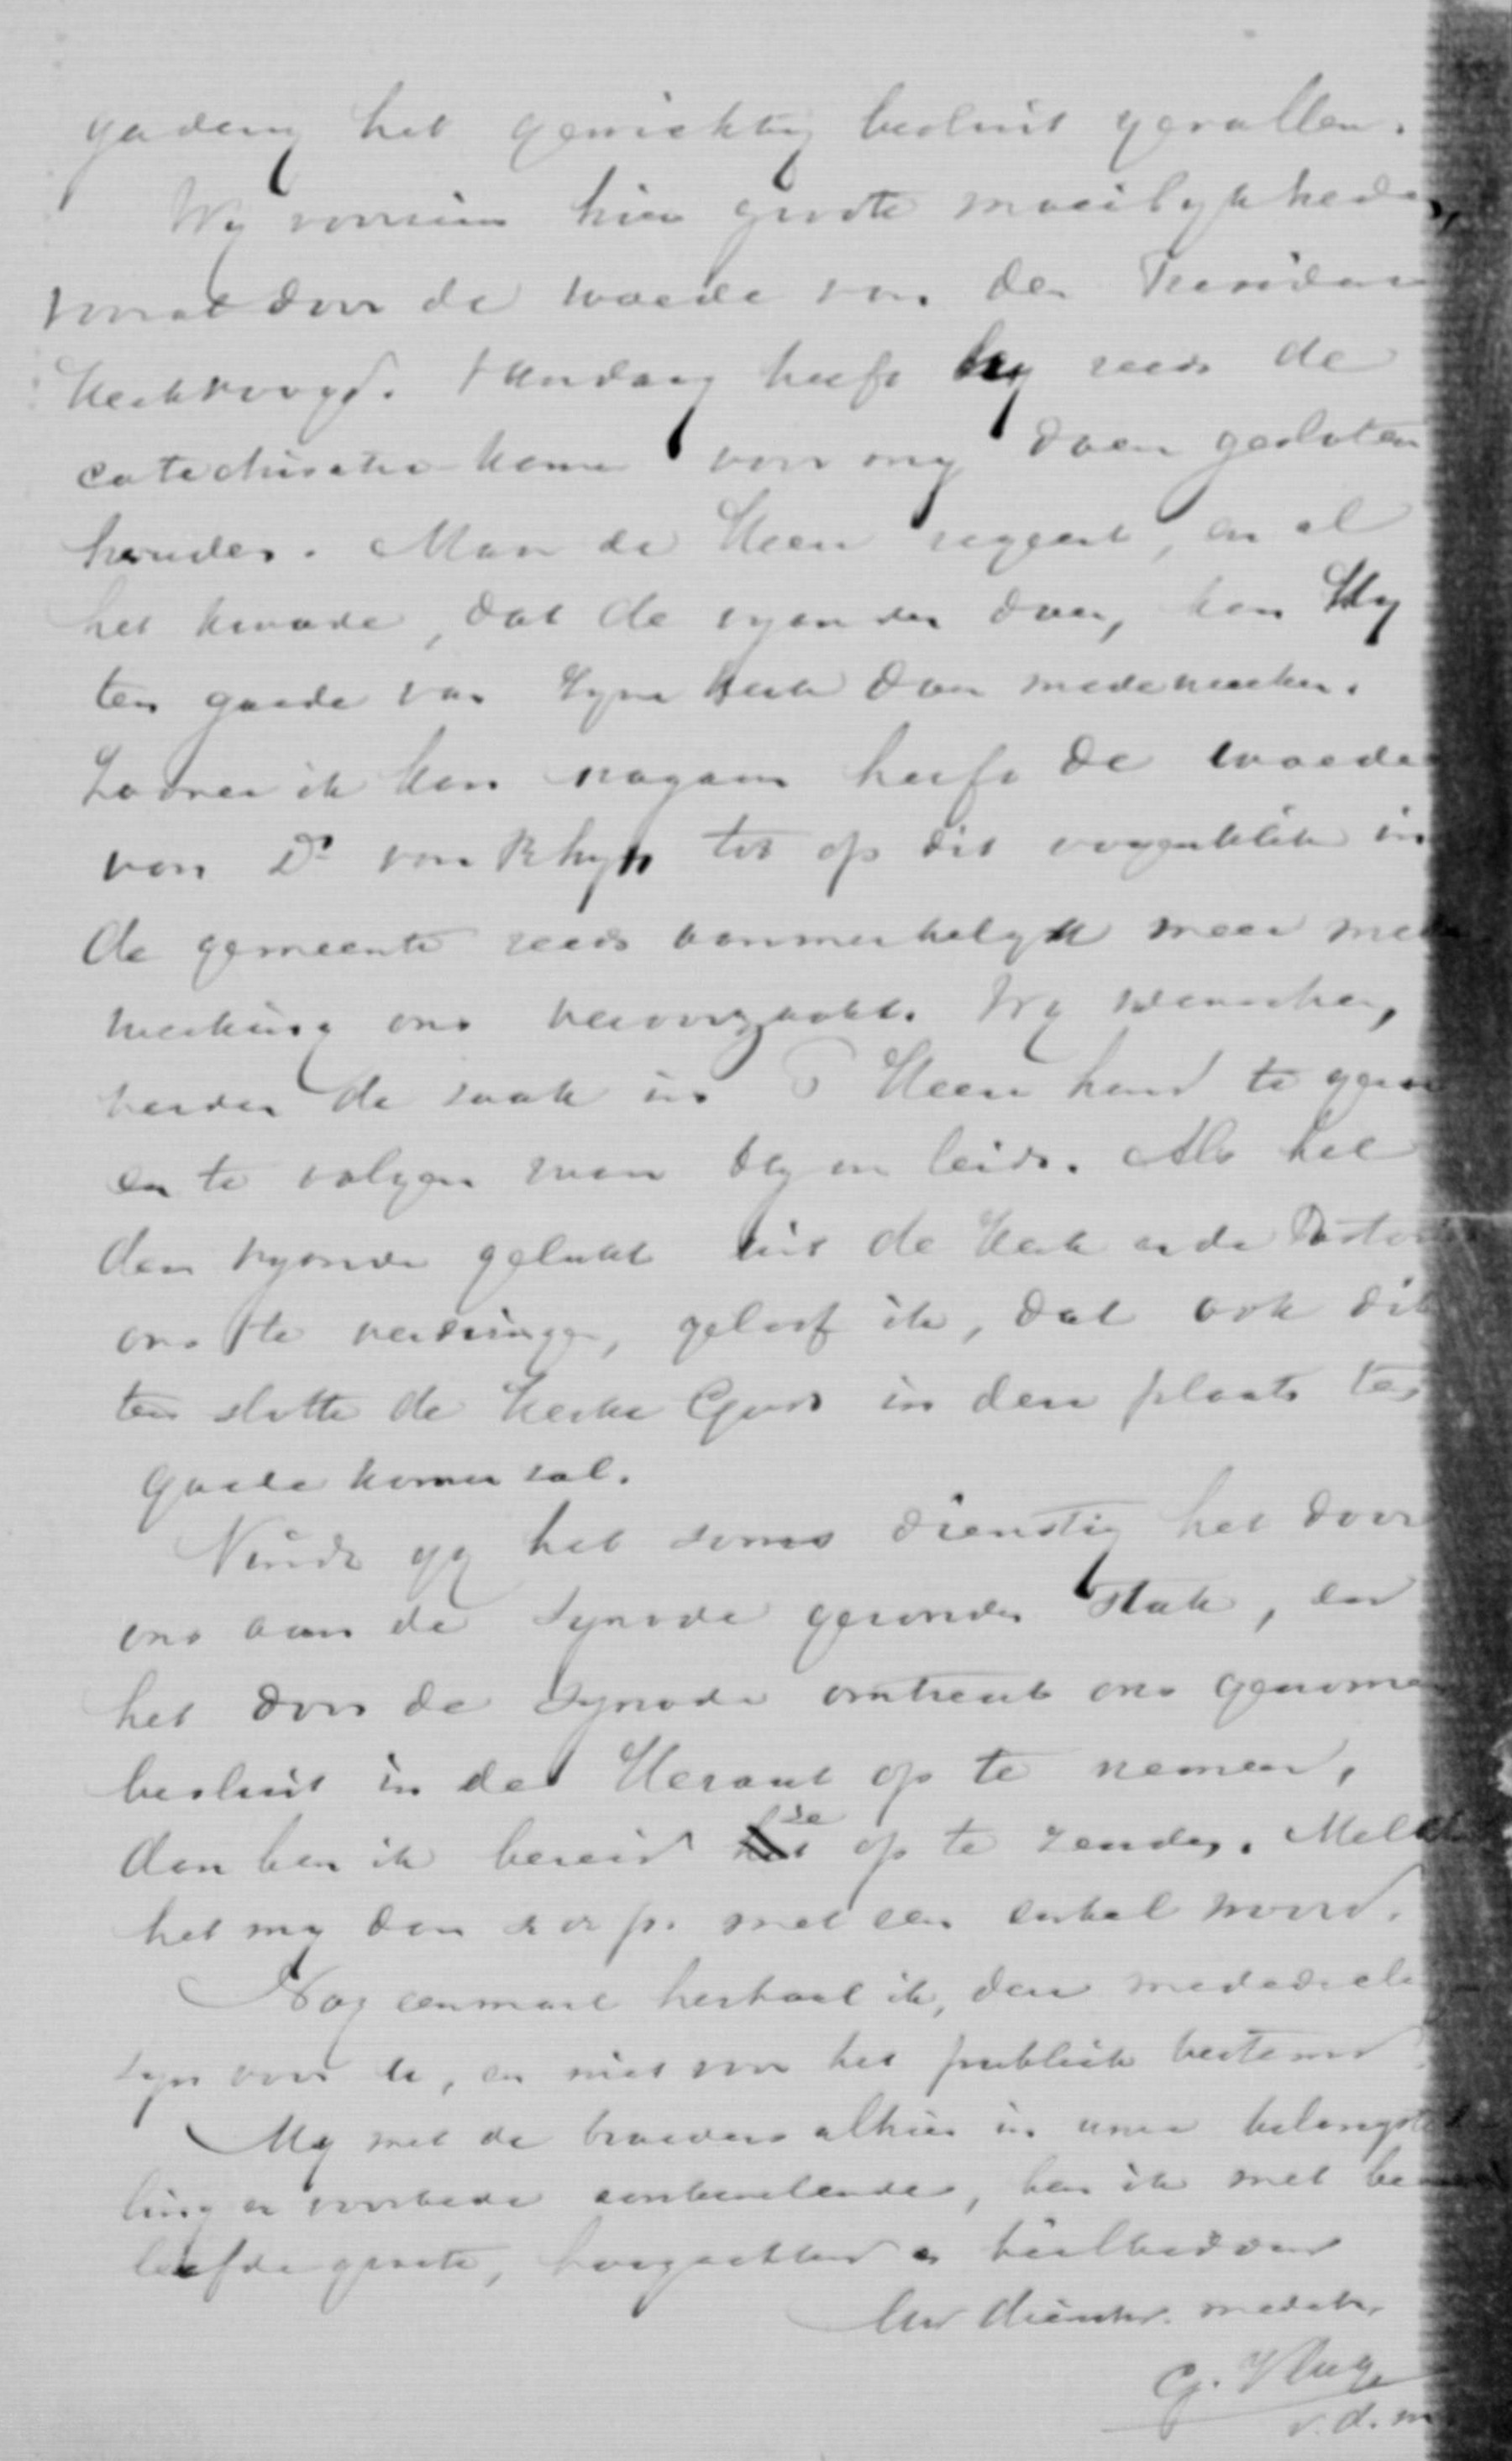 gadering het gewichtig besluit gevallen.
Wy voorzien hier groote moeilykheden,
vooral door de woede van den President
Kerkvoogd. Vandaag heeft hy reeds de
catechisatie-kamer voor my doen gesloten
houden. Maar de Heer regeert, en al
het kwade, dat de vyanden doen, kan Hy
ten goede van Zyne Kerk doen medewerken.
Zoover ik kan nagaan heeft de woede
van Ds van Rhyn tot op dit oogenblik in
de gemeente reeds aanmerkelyk meer mede
werking ons veroorzaakt. Wy wenschen,
verder de zaak in 's Heeren hand te geven
en te volgen waar Hy on leidt. Als het
den vyande gelukt uit de Kerk en de Pastorie
ons te verdringen, geloof ik, dat ook dit
ten slotte de Kerke Gods in deze plaats ten
goede komen zal.
Vindt gy het soms dienstig het door
ons aan de Synode gezonden stuk, en
het door de Synode omtrent ons genomen
besluit in de Heraut op te nemen,
dan ben ik bereid ze op te zenden. Meld
het my dan s v p. met een enkel woord.
Nog eenmaal herhaal ik, deze mededeelingen
zyn voor U, en niet voor het publiek bestemd.
My met de broeders alhier in uwe belangstel
ling en voorbede aanbevelende, ben ik met
liefdegroete, hoogachtend en heilbiddend
Uw dienstw. medebr.
G. Vlug
v. d. m.